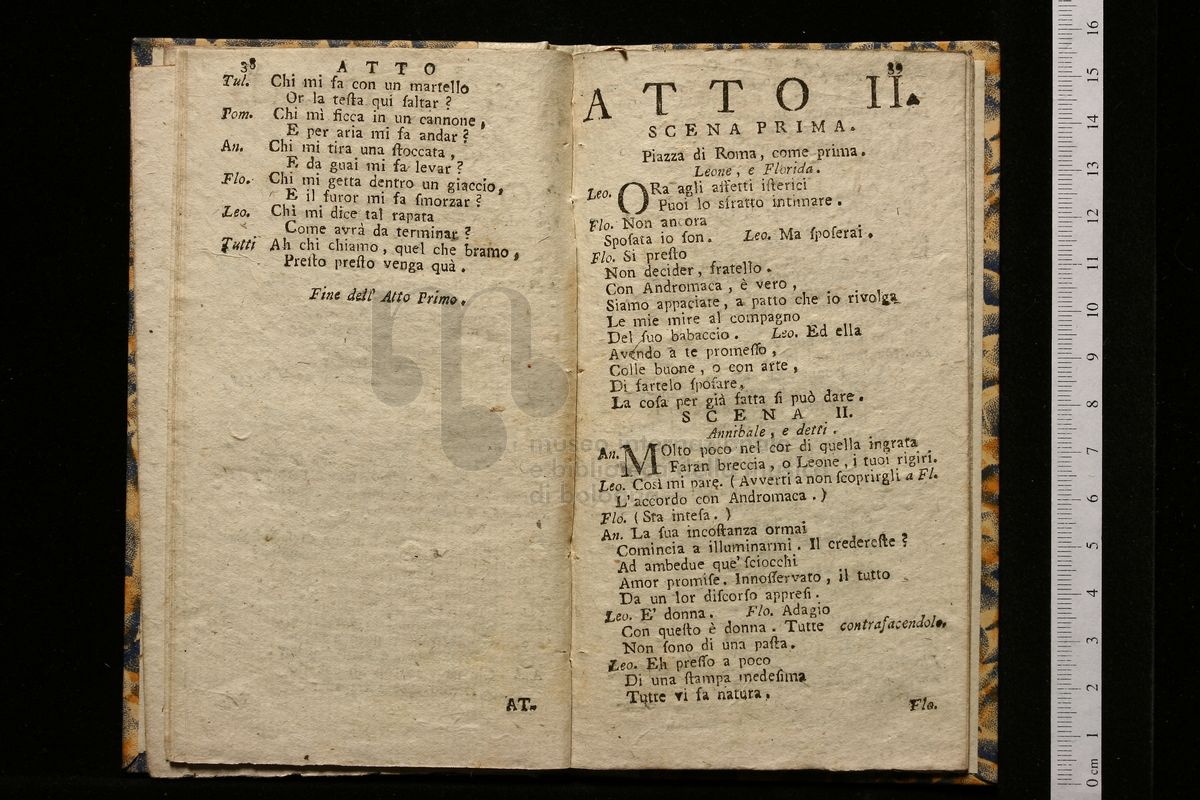 38
ATTO
Tul. Chi mi fa con un martello
Or la teſta qui ſaltar ?
Pom. Chi mi ficca in un cannone ,
E per aria mi fa andar ?
An. Chi mi tira una ſtoccata ,
E da guai mi fa levar ?
Flo. Chi mi getta dentro un giaccio,
E il furor mi fa ſmorzar ?
Leo. Chi mi dice tal rapata
Come avrà da terminar ?
Tutti Ah chi chiamo , quel che bramo ,
Preſto preſto venga quà .
Fine dell' Atto Primo .
AT-
39
ATTO II.
SCENA PRIMA.
Piazza di Roma , come prima .
Leone , e Florida .
Leo. ORa agli affetti iſterici
Puoi lo sfratto intimare .
Flo. Non ancora
Spoſata io ſon . Leo. Ma ſpoſerai .
Flo. Si preſto
Non decider , fratello .
Con Andromaca , è vero ,
Siamo appaciate , a patto che io rivolga
Le mie mire al compagno
Del ſuo babaccio . Leo. Ed ella
Avendo a te promeſſo ,
Colle buone , o con arte ,
Di fartelo ſpoſare,
La coſa per già fatta ſi può dare .
SCENA II.
Annibale , e detti .
An. MOlto poco nel cor di quella ingrata
Faran breccia , o Leone , i tuoi rigiri.
Leo. Così mi pare. ( Avverti a non ſcoprirgli a Fl.
L' accordo con Andromaca . )
Flo. ( Sta inteſa . )
An. La ſua incoſtanza ormai
Comincia a illuminarmi . Il credereſte ?
Ad ambedue que' ſciocchi
Amor promiſe. Innoſſervato , il tutto
Da un lor diſcorſo appreſi .
Leo. E' donna . Flo. Adagio
Con queſto è donna . Tutte contrafacendolo.
Non ſono di una paſta .
Leo. Eh preſſo a poco
Di una ſtampa medeſima
Tutte vi fa natura .
Flo.
museo internazionale
e biblioteca della musica
di bologna
0 cm 1 2 3 4 5 6 7 8 9 10 11 12 13 14 15 16